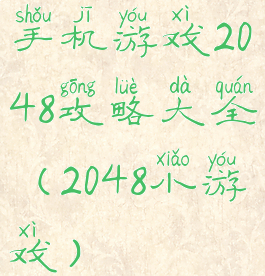 shǒu jī yóu xì
手机游戏20
gōng lüè dà quán
48攻略大全
xiǎo yóu
（2048小游
xì
戏）